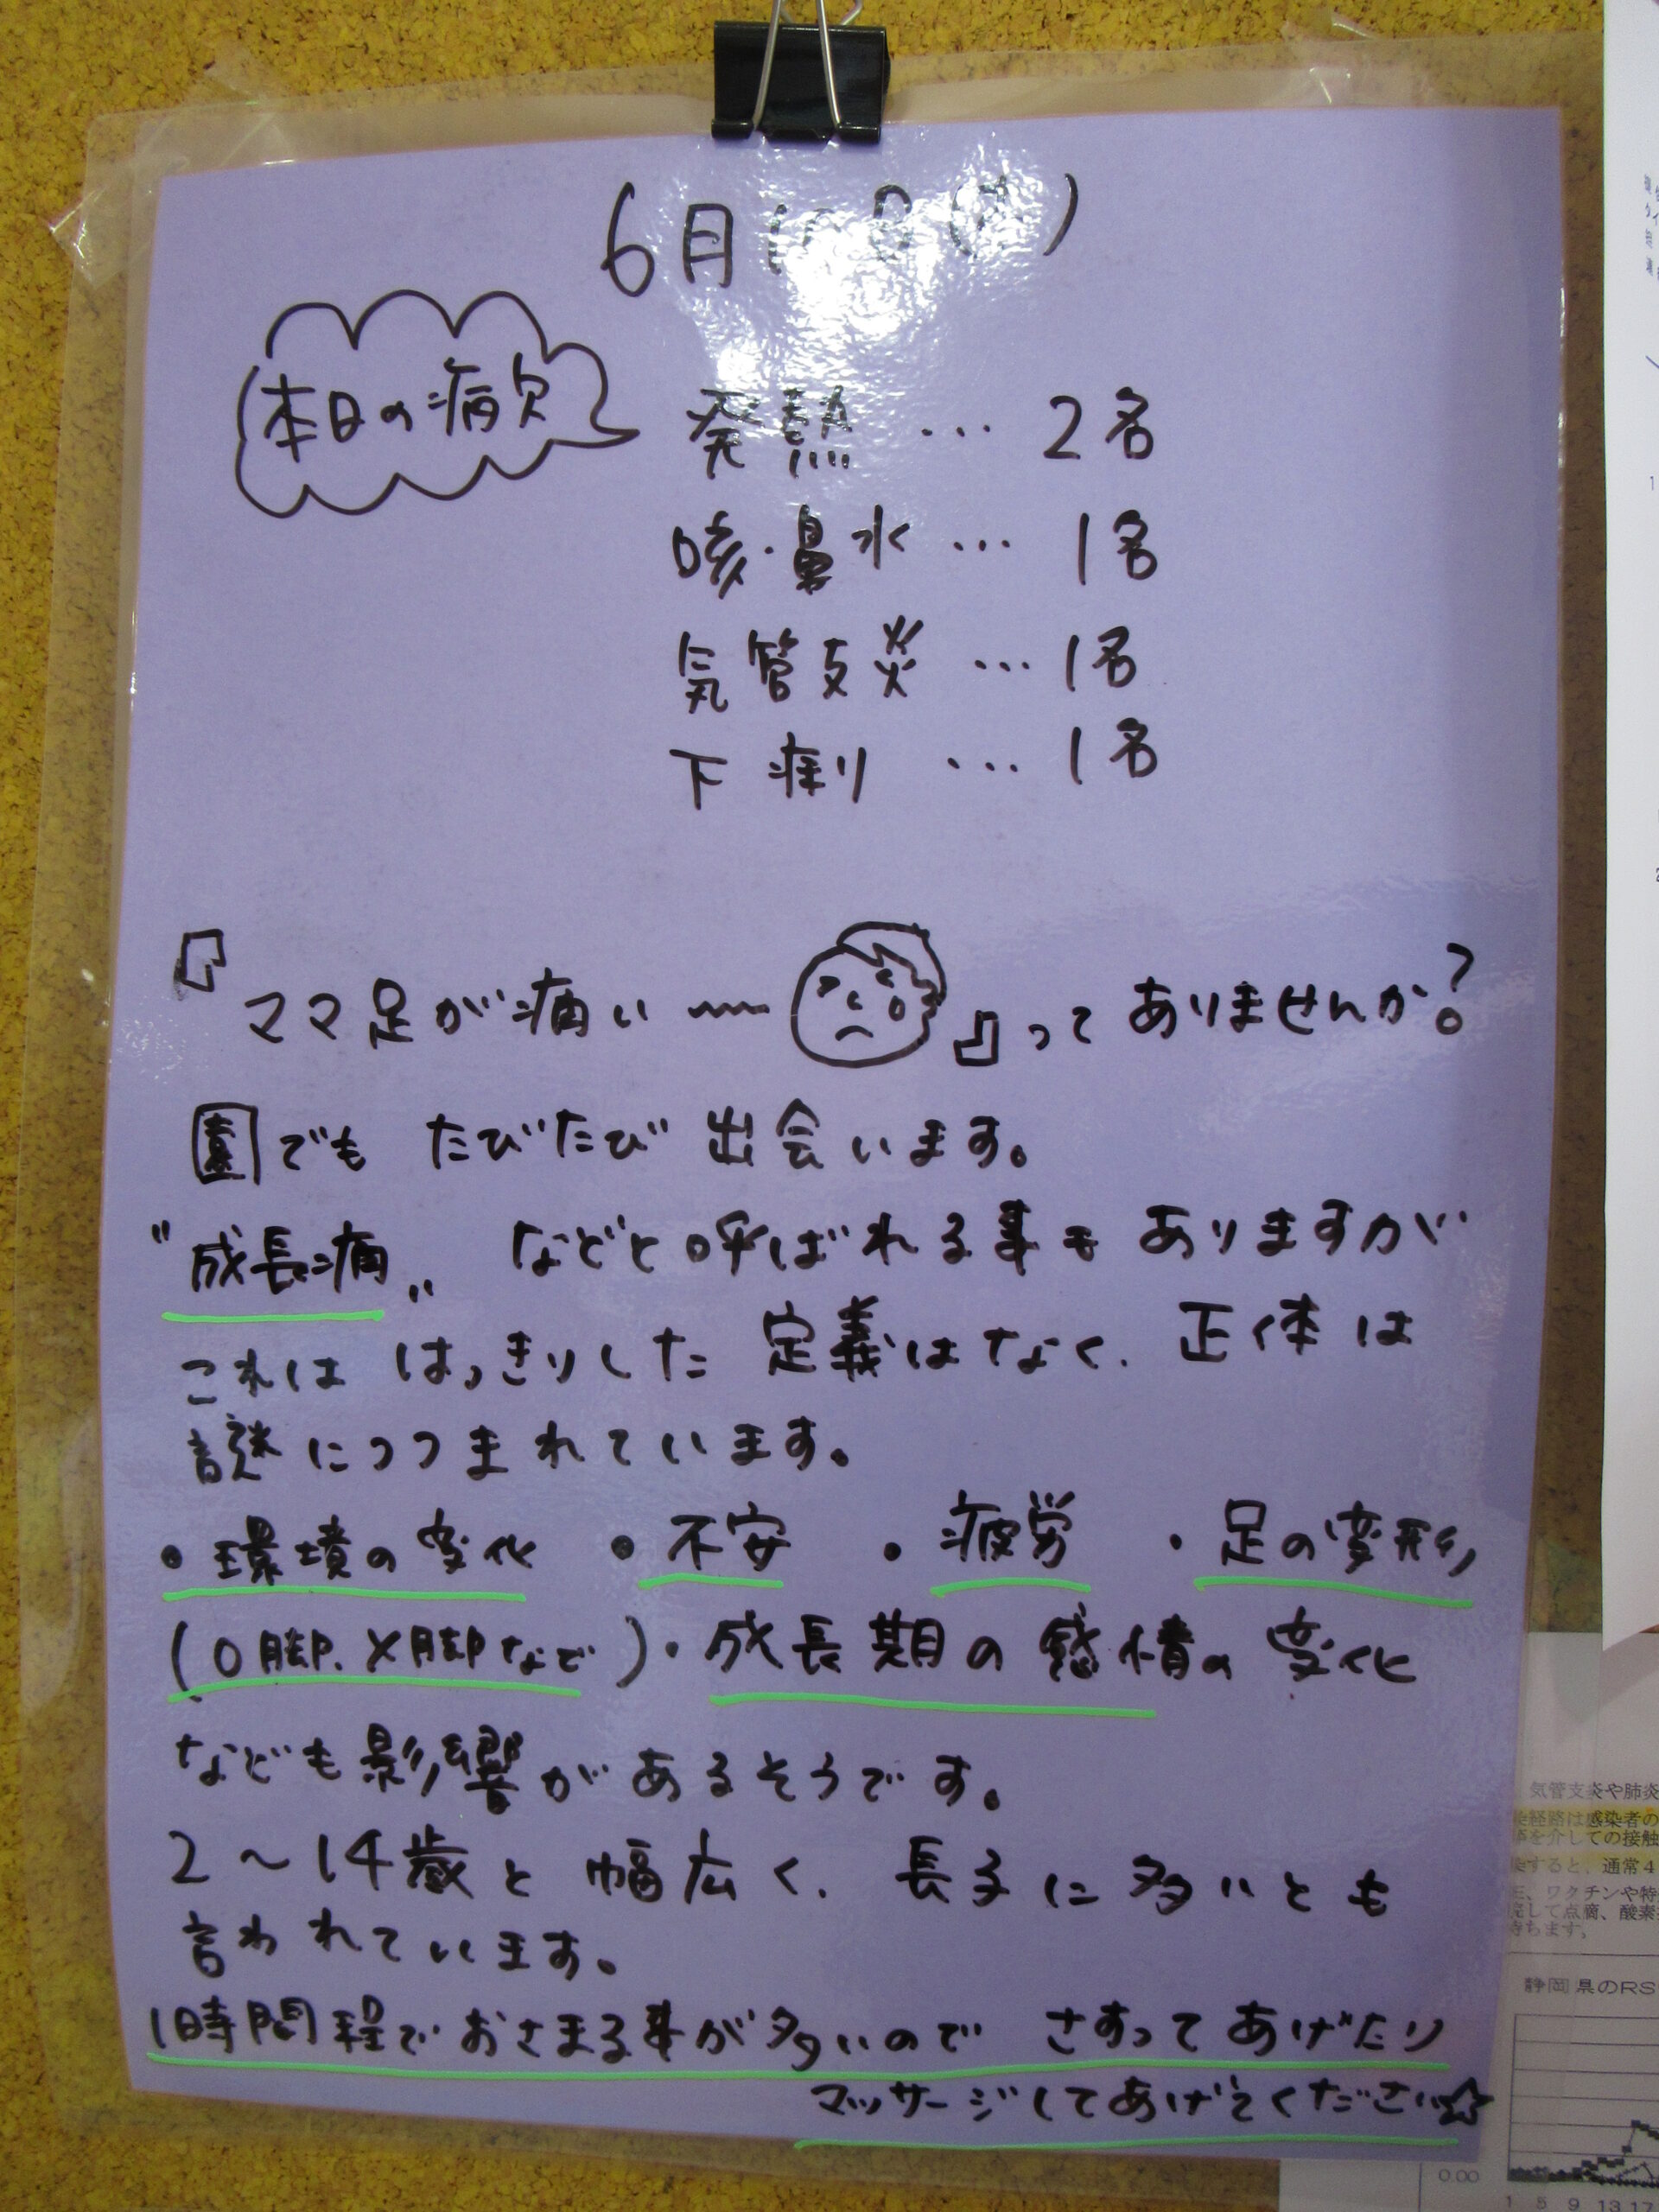 6月
本日の病欠
発熱 … 2名
咳・鼻水 … 1名
気管支炎 … 1名
下痢り … 1名
『ママ足が痛い〜〜 』ってありませんか?
園でも たびたび 出会います。
"成長痛„ などと呼ばれる事も ありますが
これは はっきりした 定義はなく、正体は
謎につつまれています。
・環境の変化 ・不安 ・疲労 ・足の変形
(O脚、X脚など)・成長期の感情の変化
なども影響があるそうです。
2〜14歳と 幅広く、長子に多いとも
言われています。
1時間程でおさまる事が多いので さすってあげたり
マッサージしてあげてください☆
気管支炎や肺炎
経路は感染者の
を介しての接触
すると、通常4
、ワクチンや特
して点滴、酸素
待ちます。
静岡県のRS
0.00
1 5 9 13 17